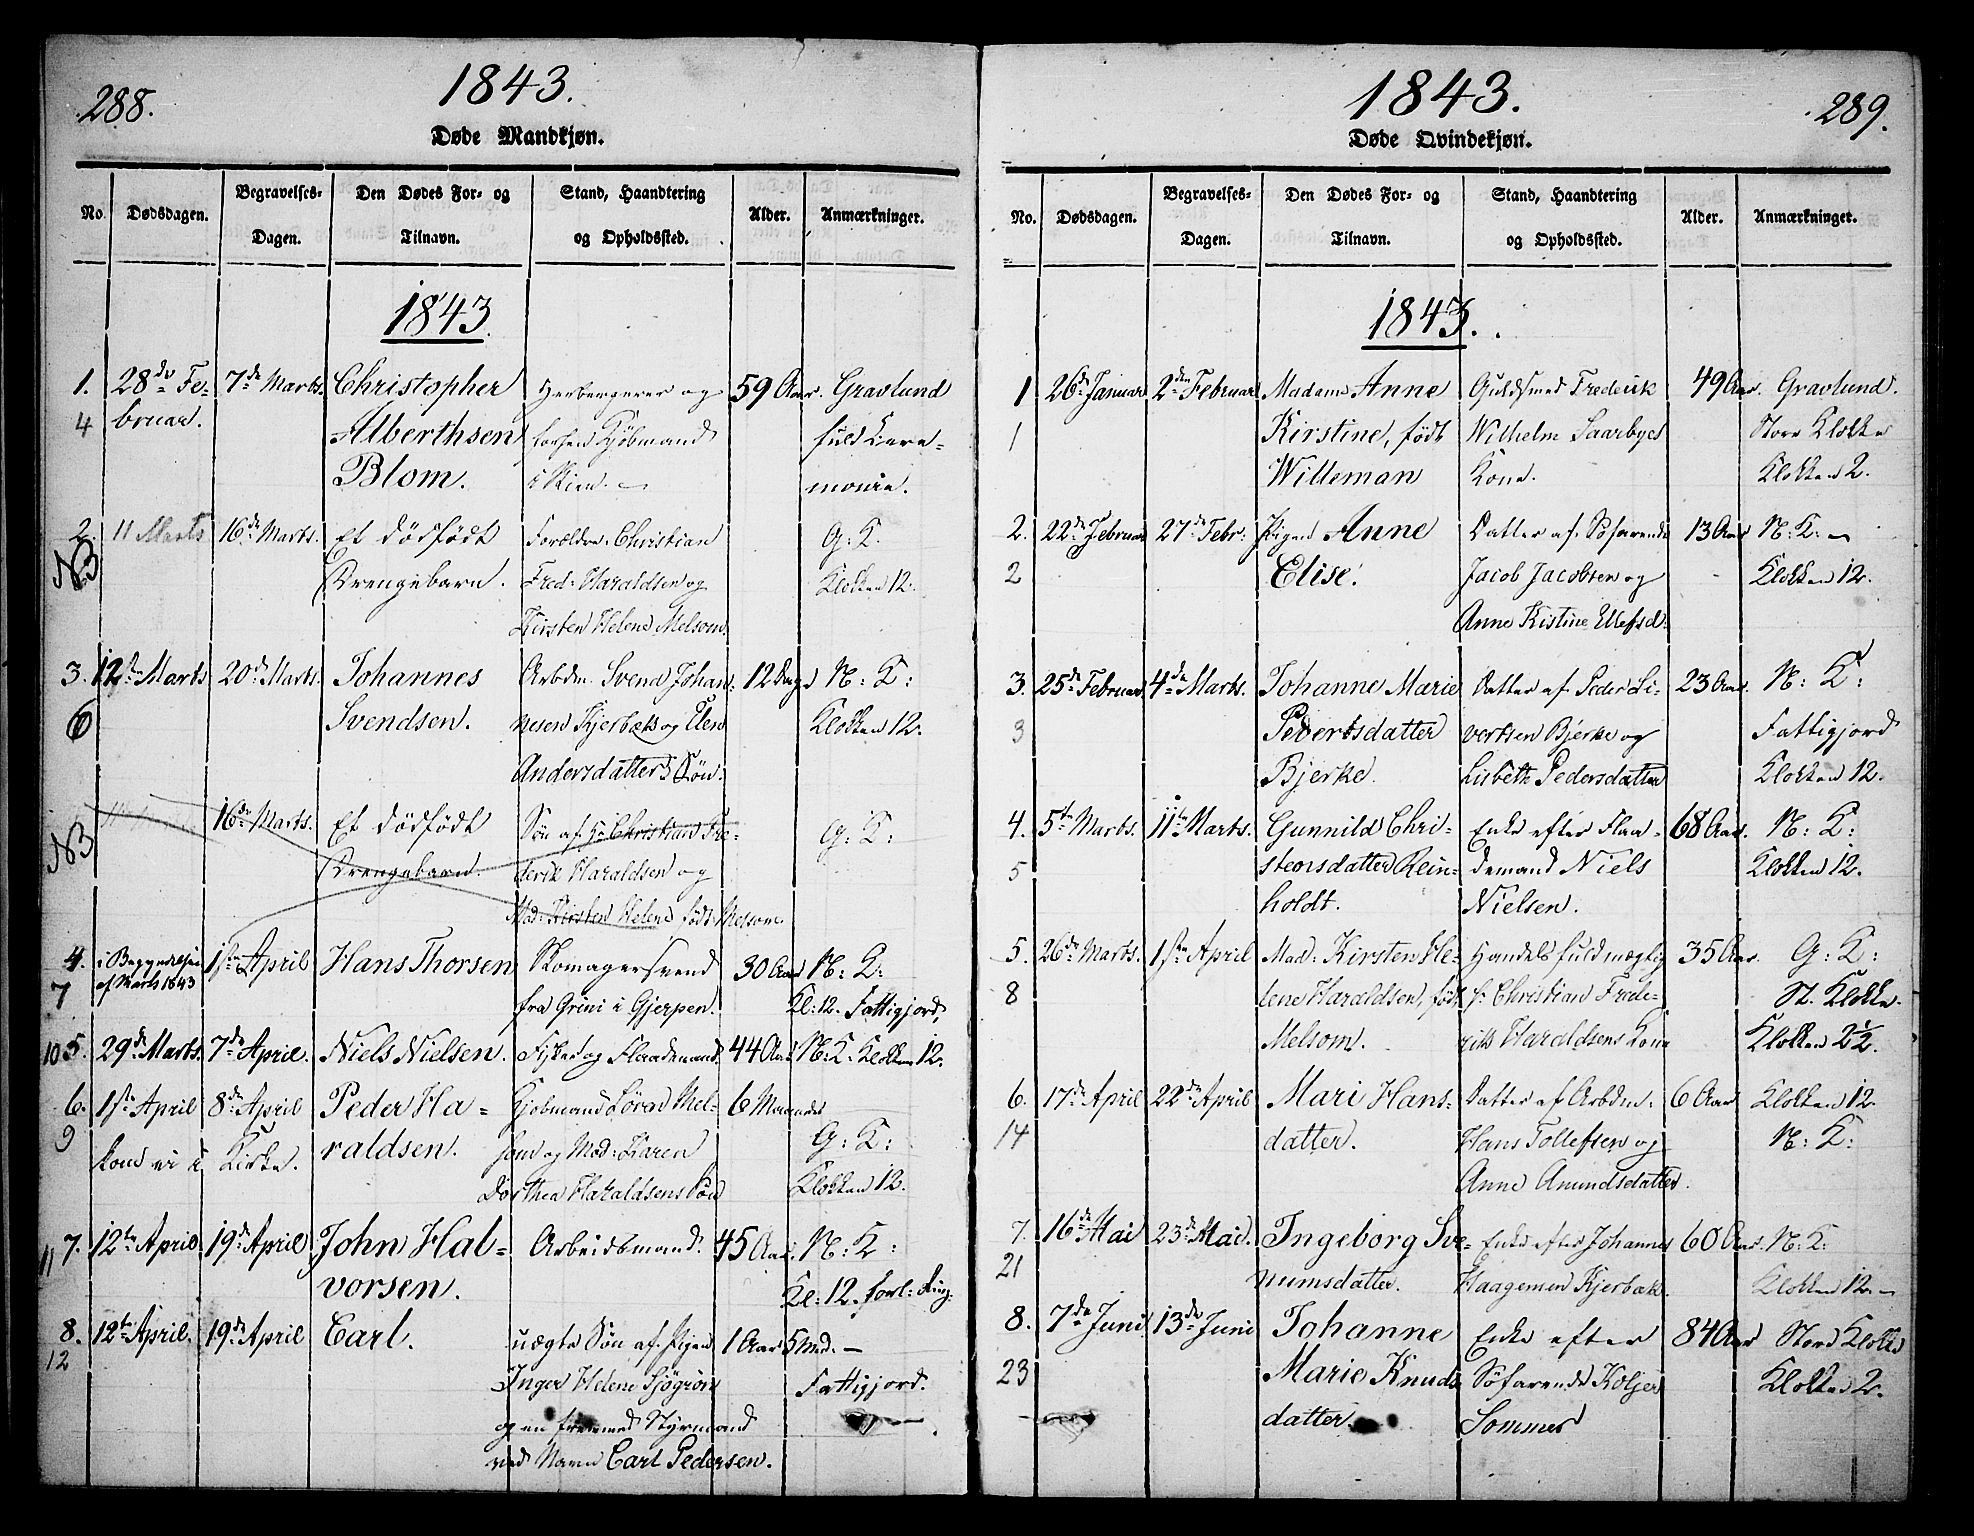 288.
1843.
Døde Mandkjøn.
No.
Dødsdagen.
Begravelses-
Dagen.
Den Dødes For- og
Tilnavn.
Stand, Haandtering
og Opholdssted.
Alder.
Anmærkninger.
1843.
1. 28de Fe- 7de Marts. Christopher Herbergerer og 59 Aar. Gravlund
4 bruar. Alberthsen Kjöbmand fuld Cere-
Blom. i Skien. – monie.
2. 11 Marts 16de Marts. Et dödfödt Forældre Christian G: K.
NB Drengebarn. Fred: Haraldsen og Klokken 12.
Kirsten Helene Melsom.
3. 12te Marts 20de Marts. Johannes Arbdm. Svend Johan- 12 Dage N: K:
6 Svendsen. nesen Kjerbæk og Elen Klokken 12.
Andersdatters Sön.
16de Marts. Et dödfödt Sön af Hr. Christian Fre- G: K:
NB Drengebarn. derik Haraldsen og
Mad: Kirsten Helene födt Melsom
4. i Begyndelsen 1ste April Hans Thorsen Skomagersvend 30 Aar N: K:
7 af Marts 1843 fra Grini i Gjerpen. Kl: 12. Fattigjord.
10 5. 29de Marts. 7de April. Niels Nielsen. Fisker og Flaademand. 44 Aar N: K. Klokken 12.
6. 1ste April 8de April Peder Ha- Kjöbmand Lövad Mel- 6 Maaneder
9 kom ei i Kirke. raldsen. som og Mad: Karen G: K:
Dorthea Haraldsens Sön Klokken 12.
11 7. 12te April 19de April John Hal- Arbeidsmand. 45 Aar. N: K:
vorsen. Kl: 12. forl: Ring.
8. 12te April. 19de April Carl. uægte Sön af Pigen 1 Aar 5 Md. –
12 Inger Helene Sjögrön Fattigjord.
og en fremmed Styrmand
ved Navn Carl Pedersen.
1843.
289.
Døde Qvindekjøn.
No.
Dødsdagen.
Begravelses-
Dagen.
Den Dødes For- og
Tilnavn.
Stand, Haandtering
og Opholdssted.
Alder.
Anmærkninger.
1843.
1 26de Januar 2den Februar Madame Anne Guldsmed Frederik 49 Aar. Gravlund.
1 Kirstine, födt Wilhelm Saarbyes Store Klokke
Willeman Kone. Klokken 2.
2. 22de Februar 27de Febr: Pigen Anne Datter af Söfarende 13 Aar N: K: –
2 Elise. Jacob Jacobsen og Klokken 12.
Anne Kistine Ellefsd.
3. 25de Februar 4de Marts. Johanne Marie Datter af Peder Si- 23 Aar. N: K:
3 Pedersdatter vertsen Bjerke og Fattigjord
Bjerke. Lisbeth Pedersdatter Klokken 12.
4. 5te Marts. 11te Marts. Gunnild Chri- Enke efter Flaa- 68 Aar. N: K:
5 stensdatter Rein- demand Niels Klokken 12.
holdt. Nielsen.
5. 26de Marts. 1ste April Mad: Kirsten He- Handelsfuldmægtig 35 Aar. G: K:
8 lene Haraldsen, födt Hr. Christian Frede- St. Klokke.
Melsom. riks Haraldsens Kone Klokken 2½.
6. 17de April 22de April Mari Hans- Datter af Arbdm: 6 Aar Klokken 12.
14 datter. Hans Tollefsen og N: K:
Anne Amundsdatter.
7. 16de Mai 23de Mai. Ingeborg Sve- Enke efter Johannes 60 Aar. N: K:
21 numsdatter. Haagensen Kjerbæk. Klokken 12. –
8. 7de Juni 13de Juni Johanne Enke efter 84 Aar Store Klokke
23 Marie Knuds Söfarende Klokken 2.
datter. Sommer